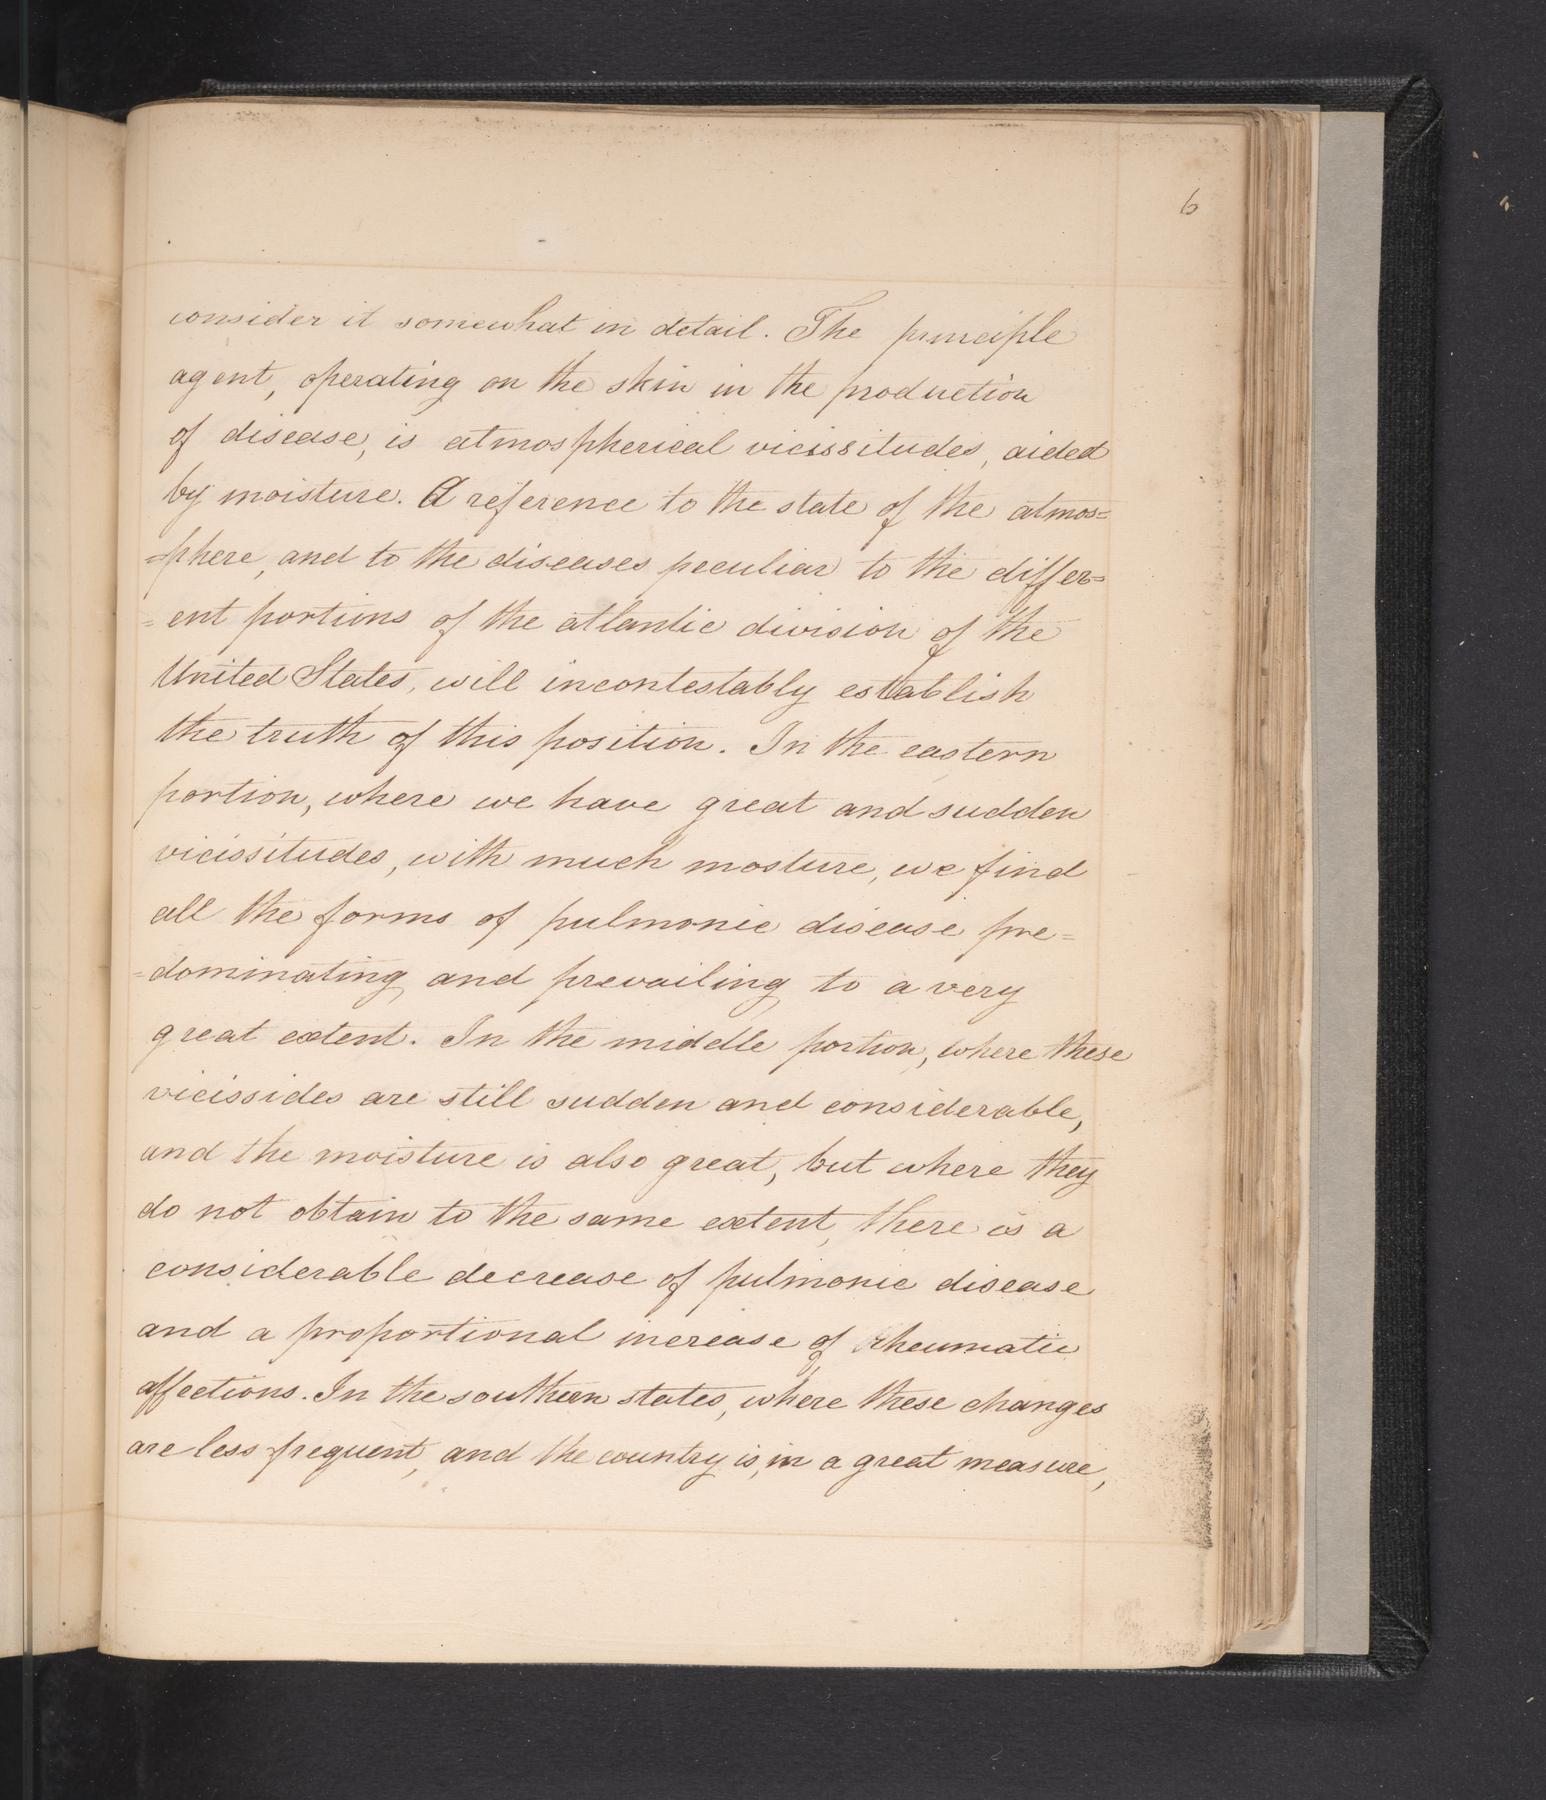 6
consider it somewhat in detail. The principle
agent, operating on the skin in the production
of disease, is atmospherical vicissitudes, aided
by moisture. A reference to the state of the atmos=
=phere, and to the diseases peculiar to the differ=
=ent portions of the atlantic division of the
United States, will incontestably establish
the truth of this position. In the eastern
portion, where we have great and sudden
vicissitudes, with much mosture, we find
all the forms of pulmonic disease pre=
=dominating and prevailing to a very
great extent. In the middle portion, where these
vicissides are still sudden and considerable,
and the moisture is also great, but where they
do not obtain to the same extent, there is a
considerable decrease of pulmonic disease
and a proportional increase of rheumatic
affections. In the southern states, where these changes
are less frequent, and the country is, in a great measure,